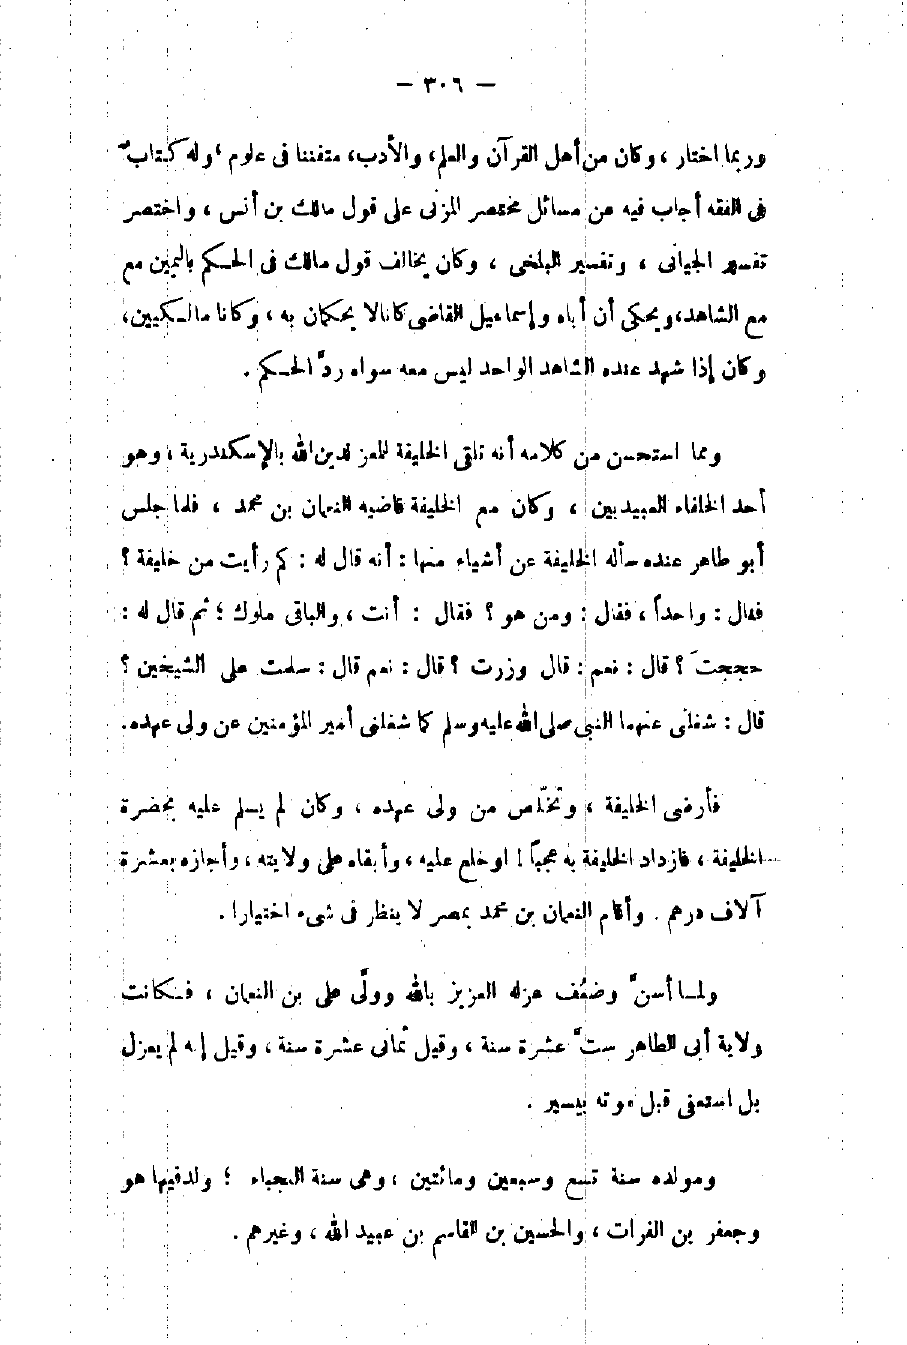 — ٣٠٦ —
وربما اختار ، وكان من أهل القرآن والعلم، والأدب، متفننا فى علوم ، وله كتاب
فى الفقه أجاب فيه عن مسائل مختصر المزنى على قول مالك بن أنس ، واختصر
تفسير الجيانى ، وتفسير البلخى ، وكان يخالف قول مالك فى الحكم باليمين مع
مع الشاهد، ويحكى أن أباه وإسماعيل القاضى كانا لا يحكمان به ، وكانا مالكيين،
وكان إذا شهد عنده الشاهد الواحد ليس معه سواه ردّ الحكم .
ومما استحسن من كلامه أنه تلقى الخليفة المعز لدين الله بالإسكندرية ، وهو
أحد الخلفاء العبيديين ، وكان مع الخليفة قاضيه النعمان بن محمد ، فلما جلس
أبو طاهر عنده سأله الخليفة عن أشياء منها : أنه قال له : كم رأيت من خليفة ؟
فقال : واحداً ، فقال : ومن هو ؟ فقال : أنت ، والباقى ملوك ؛ ثم قال له :
حججتَ ؟ قال : نعم : قال وزرت ؟ قال : نعم قال : سلمت على الشيخين ؟
قال : شغلنى عنهما النبى صلى الله عليه وسلم كما شغلنى أمير المؤمنين عن ولى عهده.
فأرضى الخليفة ، وتخلّص من ولى عهده ، وكان لم يسلم عليه بحضرة
الخليفة ، فازداد الخليفة به عجباً ! اوخلع عليه ، وأبقاه على ولايته ، وأجازه بعشرة
آلاف درهم . وأقام النعمان بن محمد بمصر لا ينظر فى شىء اختيارا .
ولما أسنّ وضعُف عزله العزيز بالله وولّى على بن النعمان ، فكانت
ولاية أبى الطاهر ستّ عشرة سنة ، وقيل ثمانى عشرة سنة ، وقيل إنه لم يعزل
بل استعفى قبل موته بيسير .
ومولده سنة تسع وسبعين ومائتين ، وهى سنة النجباء ؛ ولد فيها هو
وجعفر بن الفرات ، والحسين بن القاسم بن عبيد الله ، وغيرهم .